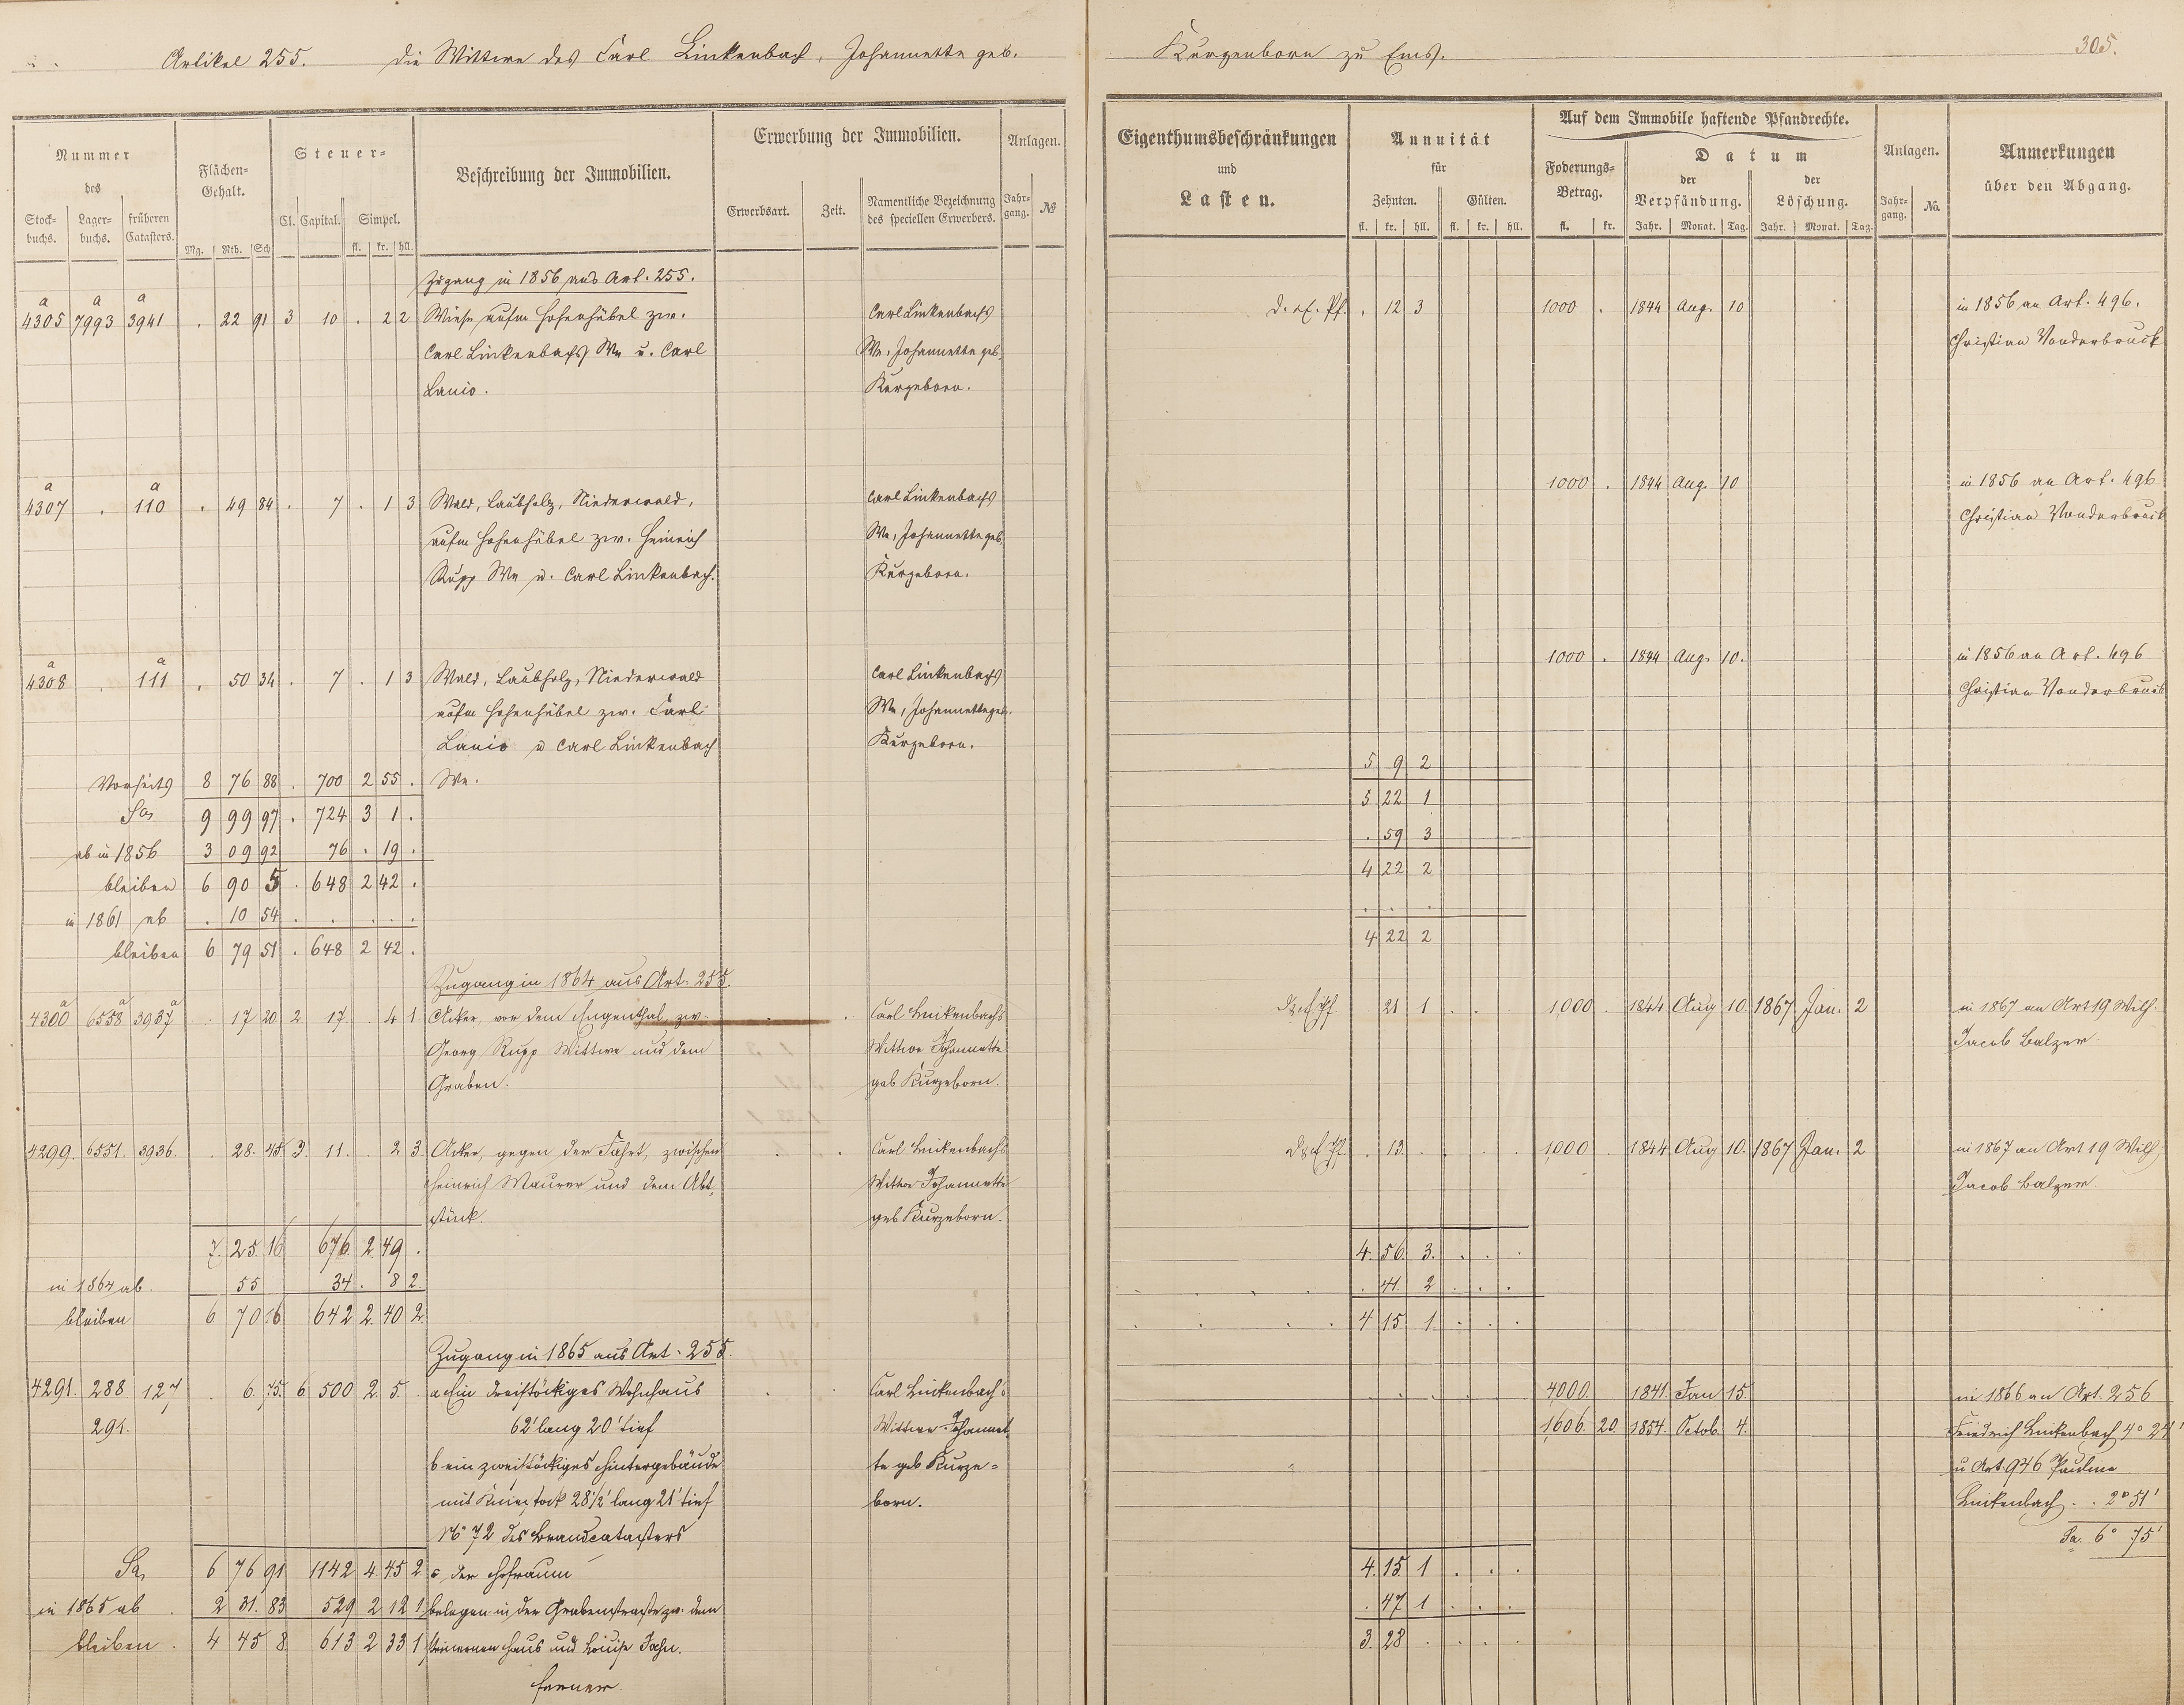 Artikel 255. die Wittwe des Carl Linkenbach, Johannette geb. Kurzenborn zu Ems. 305.
Nummer
des
Stock-buchs. Lager-buchs. früheren Catasters.
Flächen-Gehalt.
Mg. Rth. Sch
Steuer-
Cl. Capital. Simpel.
fl. kr. hll.
Beschreibung der Immobilien.
Erwerbung der Immobilien.
Erwerbsart. Zeit. Namentliche Bezeichnung des speciellen Erwerbers.
Anlagen.
Jahr-gang. No
Eigenthumsbeschränkungen
und
Lasten.
Annuität
für
Zehnten. Gülten.
fl. kr. hll. fl. kr. hll.
Auf dem Immobile haftende Pfandrechte.
Foderungs-Betrag.
fl. kr.
Datum
der Verpfändung. der Löschung.
Jahr. Monat. Tag. Jahr. Monat. Tag.
Anlagen.
Jahr-gang. No.
Anmerkungen
über den Abgang.
Zugang in 1856 aus Art. 255.
a a a
4305 7993 3941 . 22 91 3 10 . 2 2 Wiese aufm Hohenhübel zw. Carl Linkenbachs . 12 3 1000 . 1844 Aug. 10 in 1856 an Art. 496.
Carl Linkenbachs We u. Carl We, Johannette geb. Christian Vonderbruck
Lanio. Kurzeborn.
a a
4307 . 110 . 49 84 . 7 . 1 3 Wald, Laubholz, Niederwald, Carl Linkenbachs 1000 . 1844 Aug. 10 in 1856 an Art. 496
aufm Hohenhübel zw. Heinrich We, Johannette geb. Christian Vonderbruck
Rupp We u. Carl Linkenbach. Kurzeborn.
a a
4308 . 111 . 50 34 . 7 . 1 3 Wald, Laubholz, Niederwald Carl Linkenbachs 1000 . 1844 Aug. 10. in 1856 an Art. 496
aufm Hohenhübel zw. Carl We, Johannette geb. Christian Vonderbruck
Lanio u Carl Linkenbach Kurzeborn.
Vorseits 8 76 88 . 700 2 55 . We. 5 9 2
Sa 9 99 97 . 724 3 1 . 5 22 1
ab in 1856 3 09 92 76 . 19 . . 59 3
bleiben 6 90 5 . 648 2 42 . 4 22 2
in 1861 ab . 10 54 . . . . . . . .
bleiben 6 79 51 . 648 2 42 . 4 22 2
Zugang in 1864 aus Art. 255.
a a a
4300 6558 3937 . 17 20 2 17 . 4 1 Acker, vor dem zw. Carl Linkenbachs 21 1 1000 . 1844 Aug 10. 1867 Jan. 2 in 1867 an Art 19 Wilh.
Georg Rupp Wittwe und dem Wittwe Johannette Jacob Balzer.
Graben. geb Kurzeborn.
4299. 6551. 3936. . 28. 45 3. 11. . 2 3 Acker, gegen der Fahrt, zwischen Carl Linkenbachs . 13. 1000 . 1844 Aug 10. 1867 Jan. 2 in 1867 an Art 19 Wilh.
Heinrich Maurer und dem Abt, Wittwe Johannette Jacob Balzer.
stück. geb Kurzeborn.
7. 25. 16 676. 2. 49 . 4. 56. 3. . . .
in 1864 ab. 55 34. . 8 2. . 41. 2 . . .
bleiben 6 70 16 642 2. 40 2. 4 15 1. . . .
Zugang in 1865 aus Art. 255.
4291. 288 127 . 6. 75. 6 500 2. 5 . a Ein dreistöckiges Wohnhaus Carl Linkenbachs 4000. 1841. Jan 15. in 1866 an Art. 256
291. 62' lang 20' tief Wittwe Johannet- 1606. 20. 1854. Octob. 4. Friedrich Linkenbach 4° 24'
b ein zweistöckiges Hintergebäude te geb Kurze= u Art. 946 Pauline
mit Kniestock 28 1/2' lang 21' tief born. Linkenbach . . 2° 51'
No 72 des Brandcatasters Sa. 6° 75'
Sa 6 76 91 1142 4. 45 2 c der Hofraum 4. 15. 1 . . .
in 1865 ab . 2 31. 83 529 2 12 1 belegen in der Grabenstraße zw. dem . 47 1 . . .
bleiben . 4 45 8. 613 2 33 1 steinernen Haus und Louise Jahn. 3. 28 . . . .
ferner.